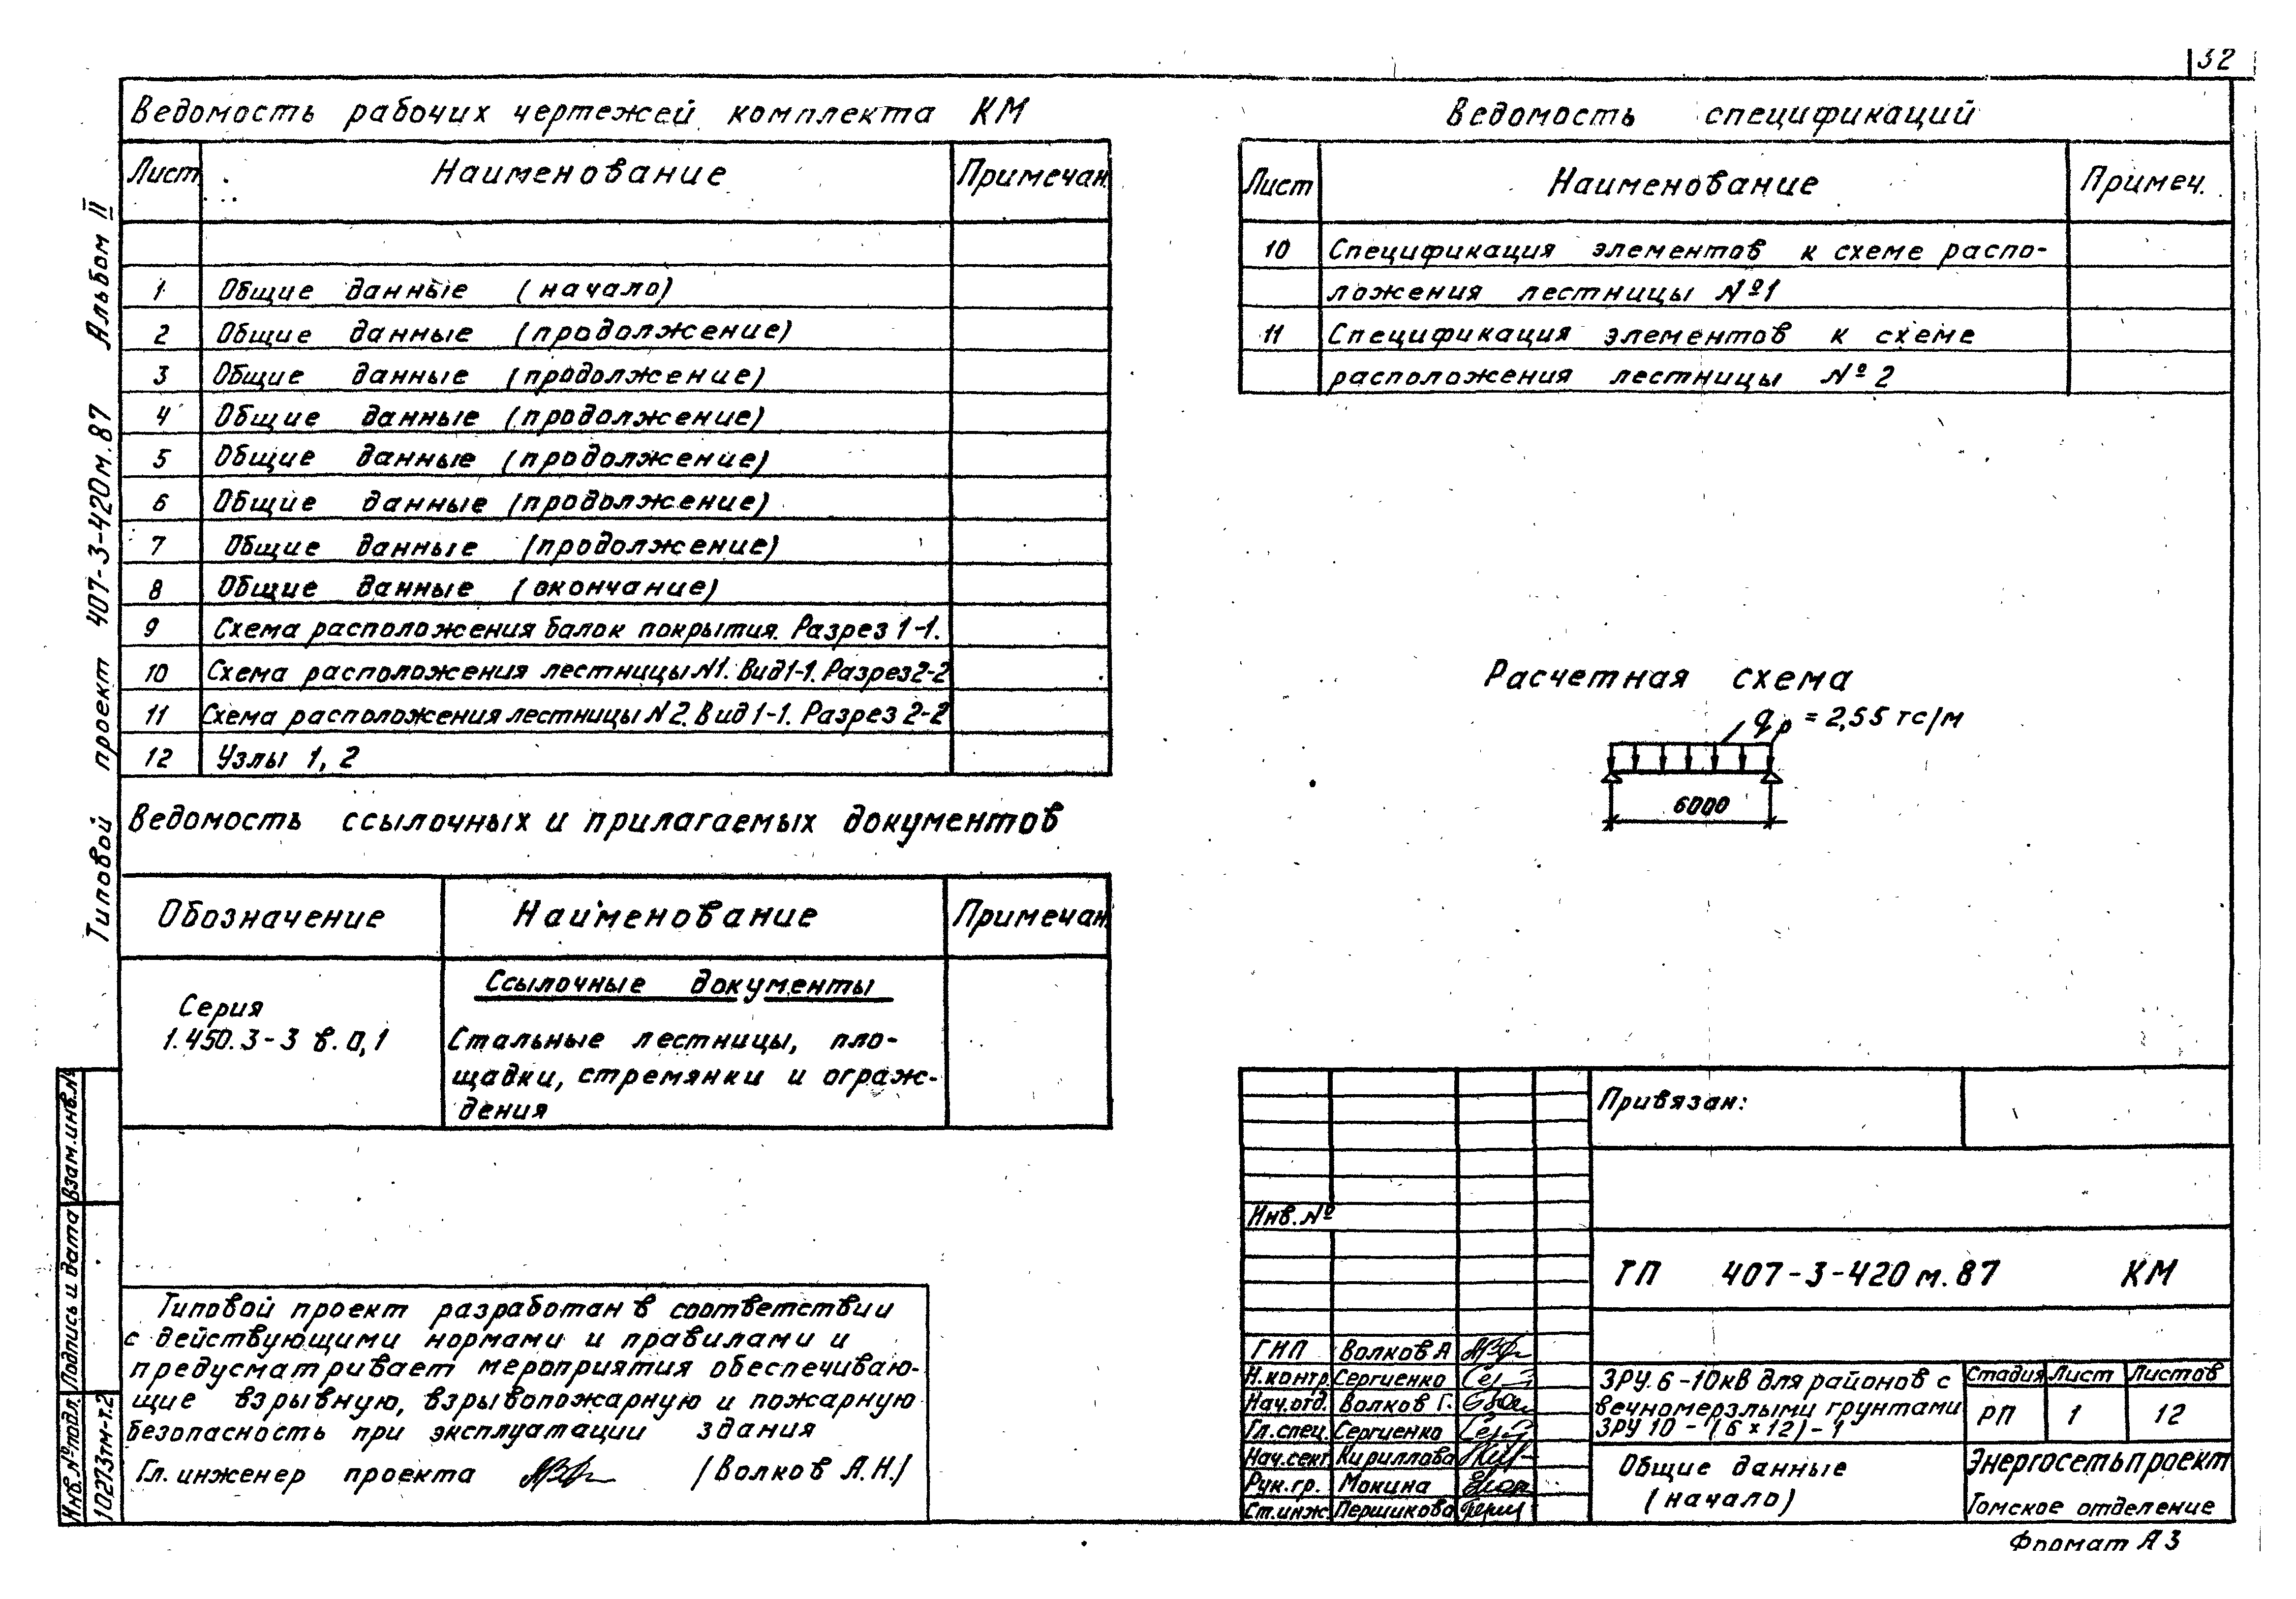 32
Ведомость рабочих чертежей комплекта КМ
Лист Наименование Примечан.
1 Общие данные (начало)
2 Общие данные (продолжение)
3 Общие данные (продолжение)
4 Общие данные (продолжение)
5 Общие данные (продолжение)
6 Общие данные (продолжение)
7 Общие данные (продолжение)
8 Общие данные (окончание)
9 Схема расположения балок покрытия. Разрез 1-1.
10 Схема расположения лестницы N1. Вид 1-1. Разрез 2-2
11 Схема расположения лестницы N2. Вид 1-1. Разрез 2-2
12 Узлы 1, 2
Ведомость ссылочных и прилагаемых документов
Обозначение Наименование Примечан.
Ссылочные документы
Серия
1.450.3-3 в.0,1 Стальные лестницы, пло-
щадки, стремянки и ограж-
дения
Типовой проект разработан в соответствии
с действующими нормами и правилами и
предусматривает мероприятия обеспечиваю-
щие взрывную, взрывопожарную и пожарную
безопасность при эксплуатации здания
Гл. инженер проекта /Волков А.Н./
Типовой проект 407-3-420м.87 Альбом II
Взам.инв.№
Подпись и дата
Инв.№ подл.
10273тм-т.2
Ведомость спецификаций
Лист Наименование Примеч.
10 Спецификация элементов к схеме распо-
ложения лестницы №1
11 Спецификация элементов к схеме
расположения лестницы №2
Расчетная схема
qр = 2,55 тс/м
6000
Привязан:
Инв.№
ТП 407-3-420м.87 КМ
ГИП Волков А
Н.контр. Сергиенко
Нач.отд. Волков Г.
Гл.спец. Сергиенко
Нач.сект. Кириллова
Рук.гр. Мокина
Ст.инж. Першикова
ЗРУ 6-10кВ для районов с
вечномерзлыми грунтами
ЗРУ 10-(6×12)-1
Стадия Лист Листов
РП 1 12
Общие данные
(начало)
Энергосетьпроект
Томское отделение
Формат А3